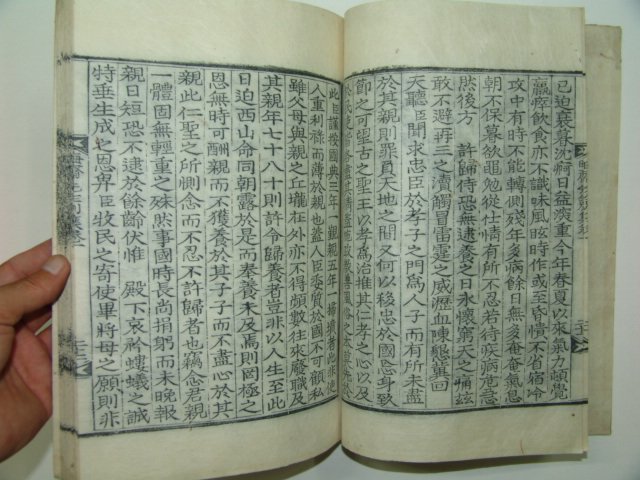 已迫衰暮沈痾日益深重今年春夏以來氣力頓覺
羸瘁飮食亦不識味風眩時作或至昏憒不省宿冷
攻中有時不能轉側殘年多病餘日無多奄奄氣息
朝不保暮欲黽勉從仕情有所不忍若待疾病危
然後方 許歸侍恐無逮養之日永懷窮天之慟玆
敢不避再三之瀆觸冒雷霆之威瀝血陳懇冀回
天聽臣聞求忠臣於孝子之門爲人子而有所未盡
於其親則罪負天地之間何以移忠於國忘身致
節之可望古之聖王以孝爲治推其仁孝之心以及
於
此臣謹按國典三年一覲親五年一掃墳者此
人重利祿而薄於親也盖人臣委質於國不可顧私
雖父母與親之丘壠在外亦不得頻數往來廢職及
其親年七十八十則許令歸養者豈非以人生至此
日迫西山命同朝露於是而奉養未及焉則罔極之
恩無時可酬親而不獲養於其子子而不盡心於其
親此仁聖之所惻念而不忍不許歸者也竊念君親
一體固無輕重之殊然事國時長尙捐躬而未晩報
親日短恐不逮於餘齡伏惟 殿下哀矜螻蟻之誠
特垂生成之恩畀臣牧民之寄使畢將母之願則非